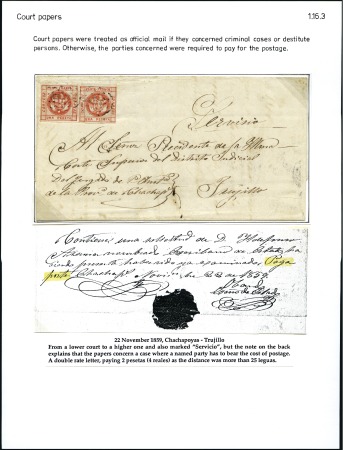 Court papers 1.15.3
Court papers were treated as official mail if they concerned criminal cases or destitute
persons. Otherwise, the parties concerned were required to pay for the postage.
Servicio
Al Señor Presidente de la Ilma
Corte Superior del Distrito Judicial
Del Juzgado de
de la Prov.ª de Chachap.s Trujillo
Contiene una solicitud de D. Ildefonso
Paga
porte Chachap.s Nov. 22 de 1859
22 November 1859, Chachapoyas - Trujillo
From a lower court to a higher one and also marked "Servicio", but the note on the back
explains that the papers concern a case where a named party has to bear the cost of postage.
A double rate letter, paying 2 pesetas (4 reales) as the distance was more than 25 leguas.